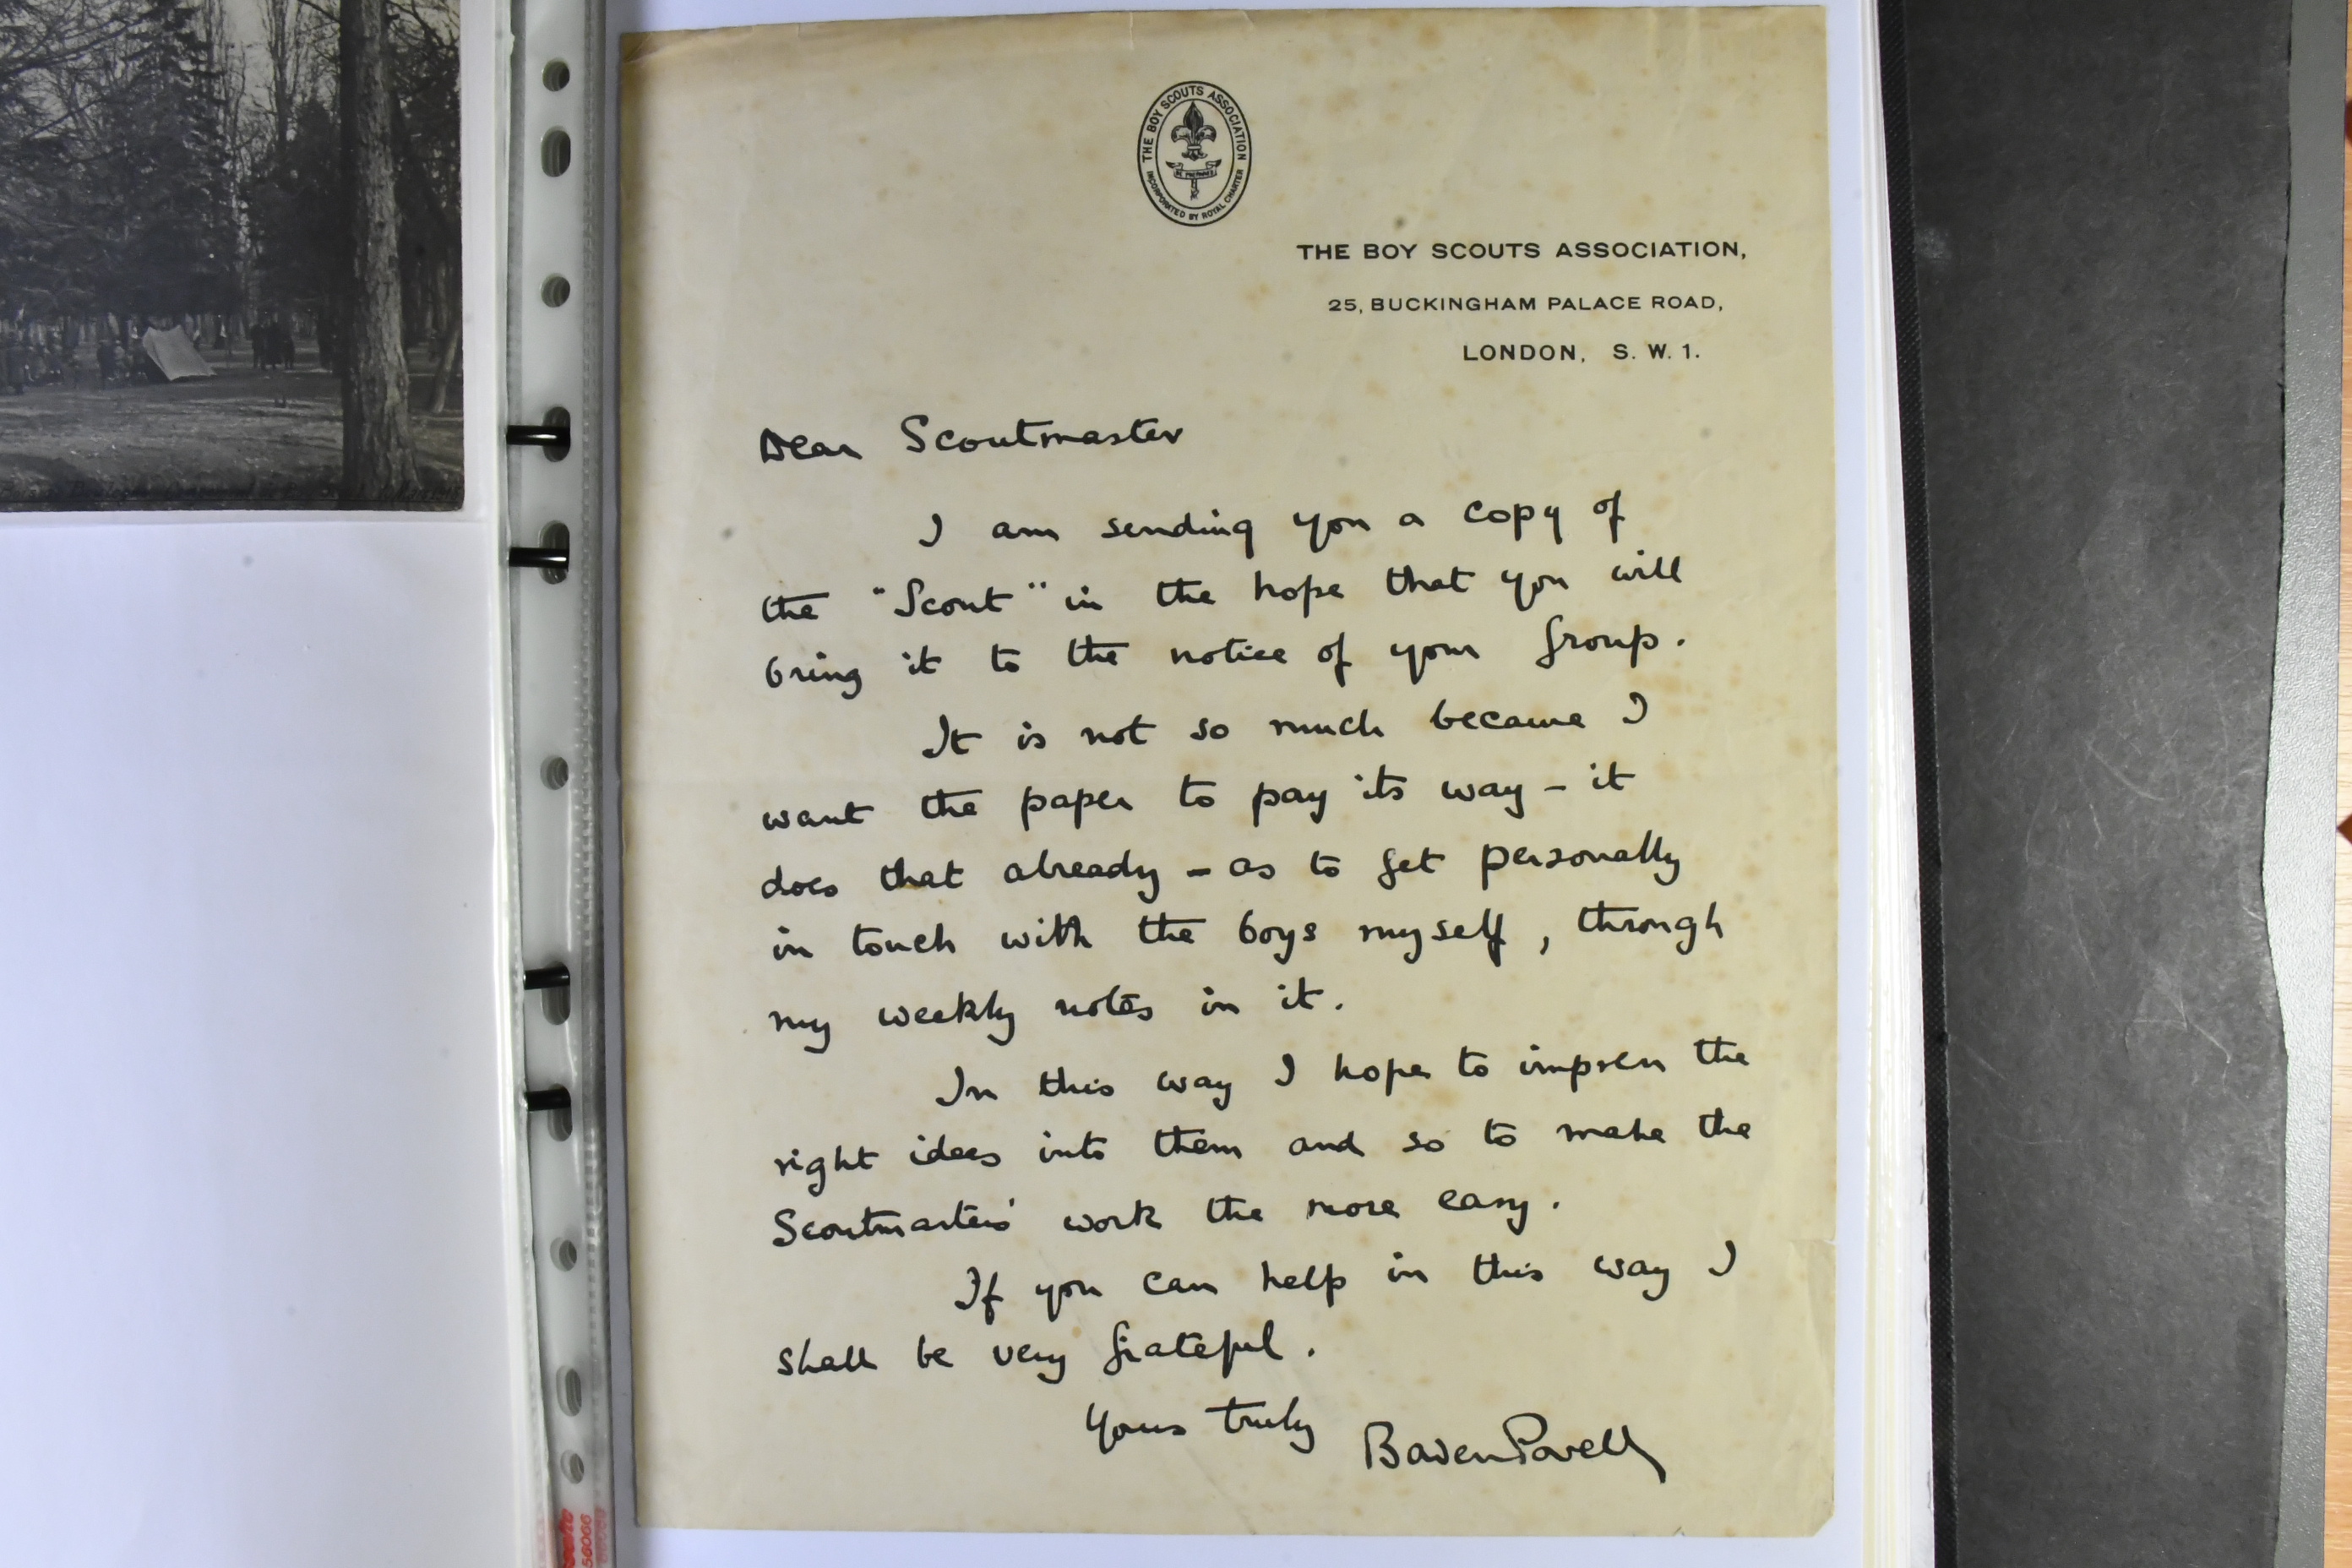 THE BOY SCOUTS ASSOCIATION
INCORPORATED BY ROYAL CHARTER
BE PREPARED
THE BOY SCOUTS ASSOCIATION,
25, BUCKINGHAM PALACE ROAD,
LONDON, S. W. 1.
Dear Scoutmaster
I am sending you a copy of
the "Scout" in the hope that you will
bring it to the notice of your Group.
It is not so much because I
want the paper to pay its way – it
does that already – as to get personally
in touch with the boys myself, through
my weekly notes in it.
In this way I hope to impress the
right ideas into them and so to make the
Scoutmasters' work the more easy.
If you can help in this way I
shall be very grateful.
Yours truly
Baden Powell
56066